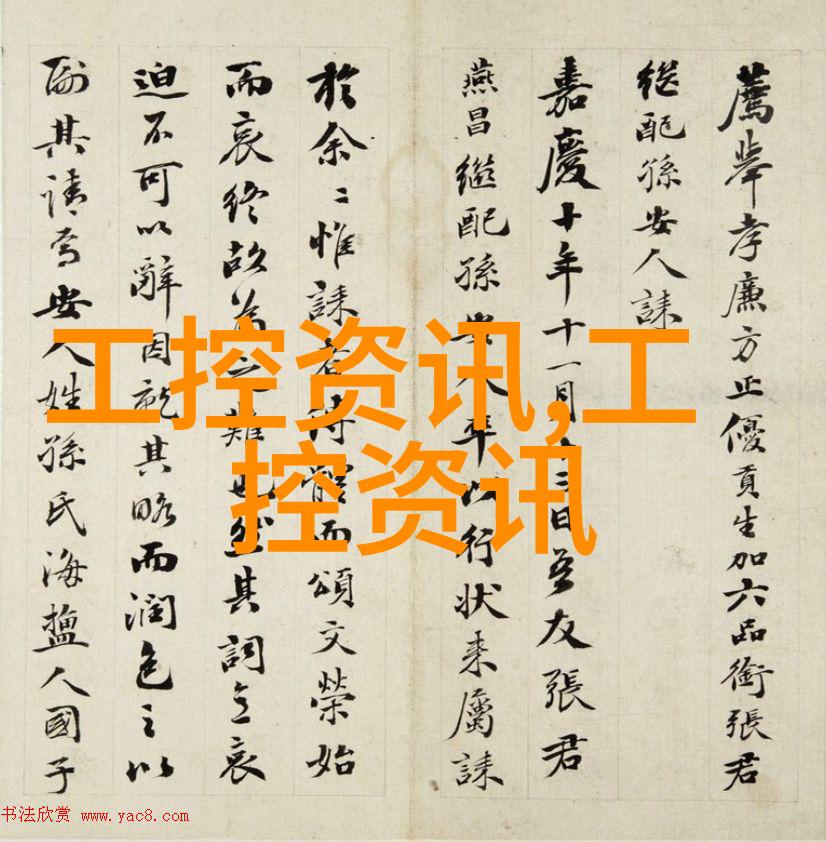 薦舉孝廉方正優貢生加六品銜張君
继配孫安人誄
嘉慶十年十一月三日吾友張君
燕昌繼配孫安人卒以行状来屬誄
於余〻惟誄者傳體而頌文榮始
而哀終故為之難也然其詞哀
迫不可以辭因就其略而潤色之以
副其請為安人姓孫氏海鹽人國子
工控资讯,工
控资讯
书法欣赏 www.yac8.com